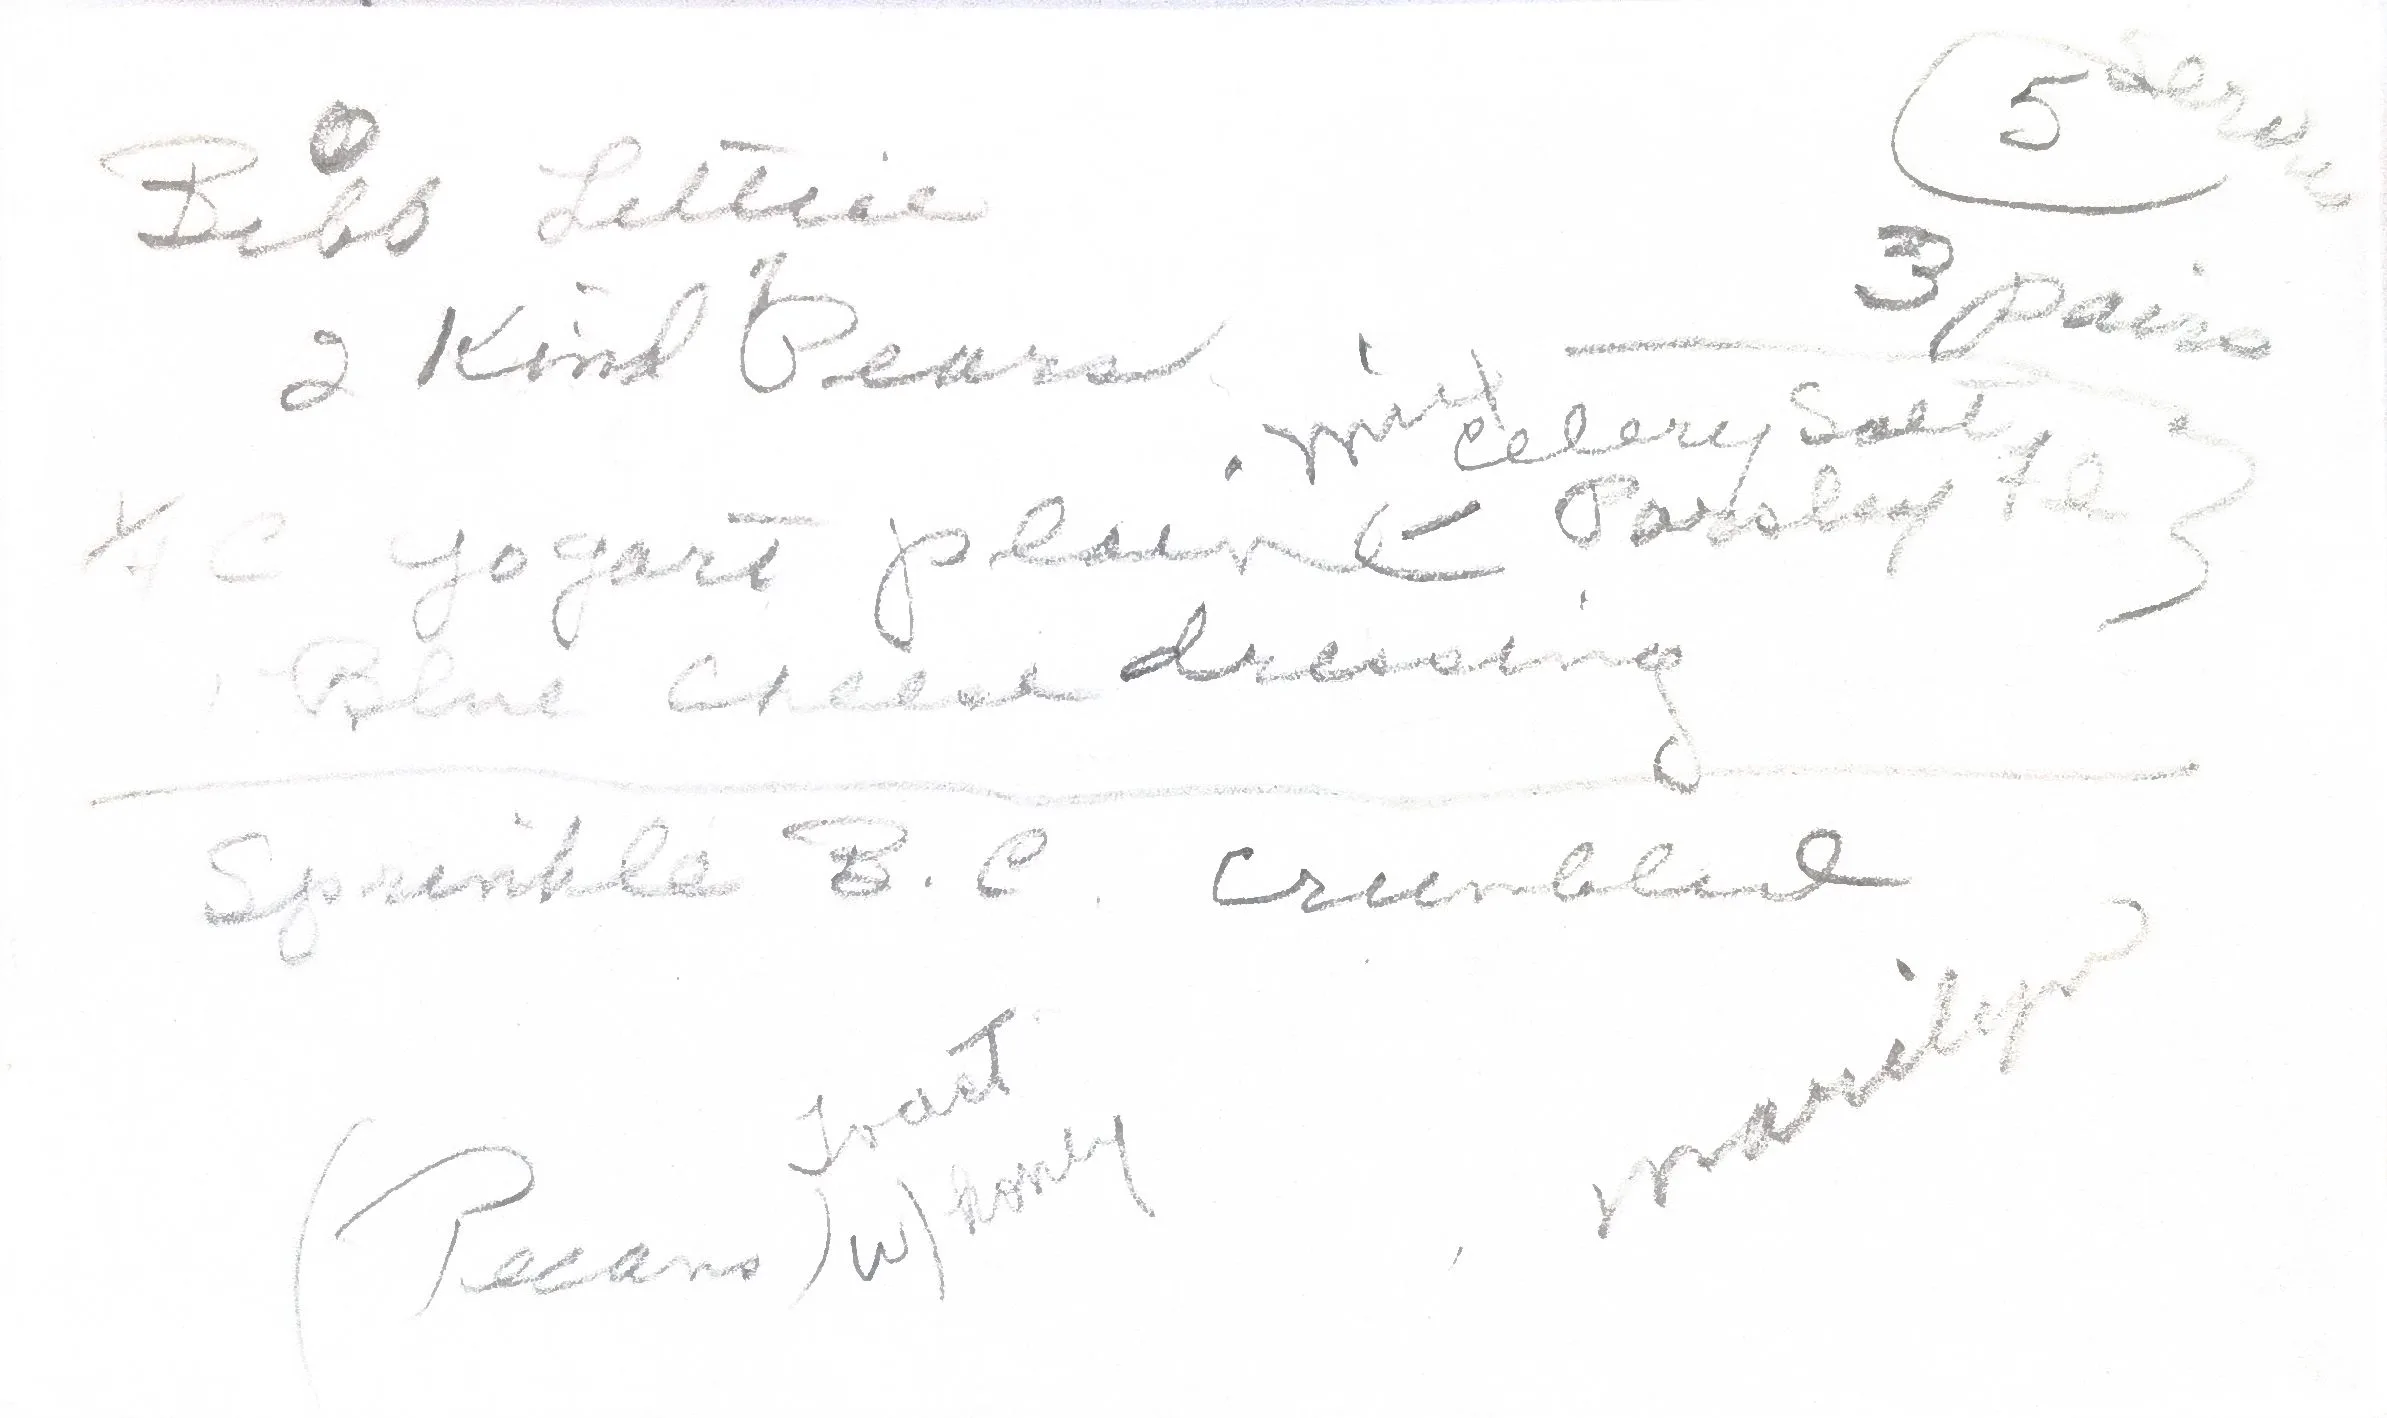 5 Serves
Bibb Lettice
3 pairs
2 Kind Pears
mix
Celery Salt,
1/4 C yogart plain - Parsley Fl
1 Blue Cheese dressing
Sprinkle B. C. Crumbled
marilyn
Toast
(Pecans) w/ honey